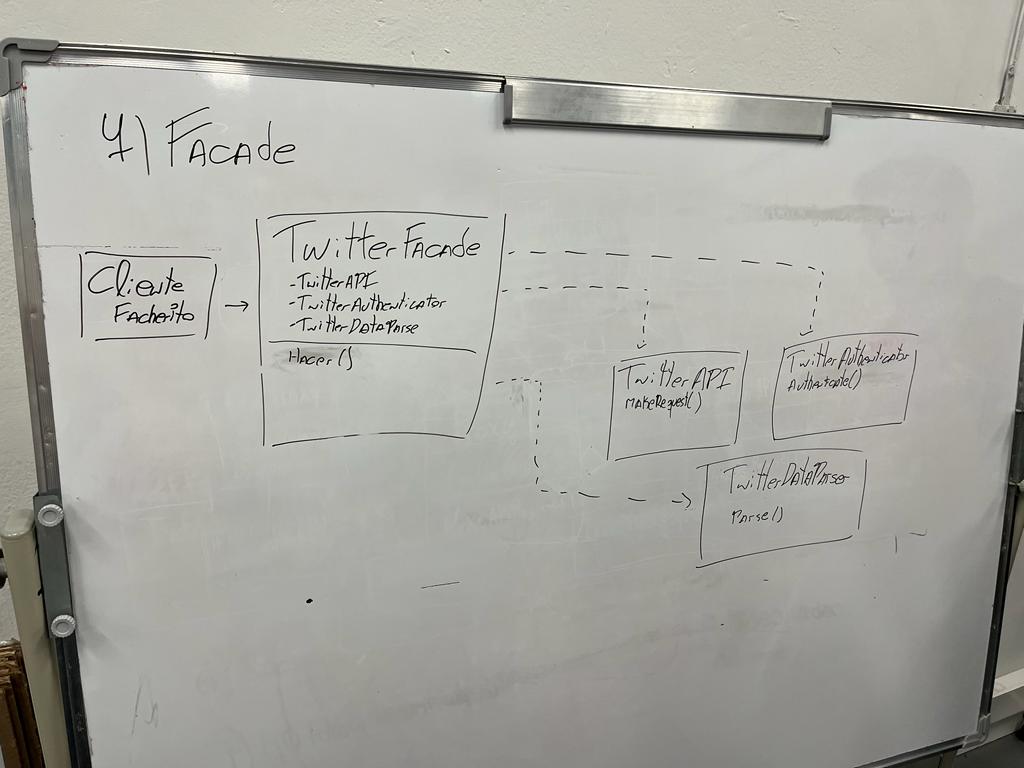 4) FACADE
Cliente
FACHERITO
TwitterFACADE
-TwitterAPI
-TwitterAuthenticator
-TwitterDATAParse
HACER()
TwitterAPI
MAKERequest()
TwitterAuthenticator
Authenticate()
TwitterDATAParser
Parse()